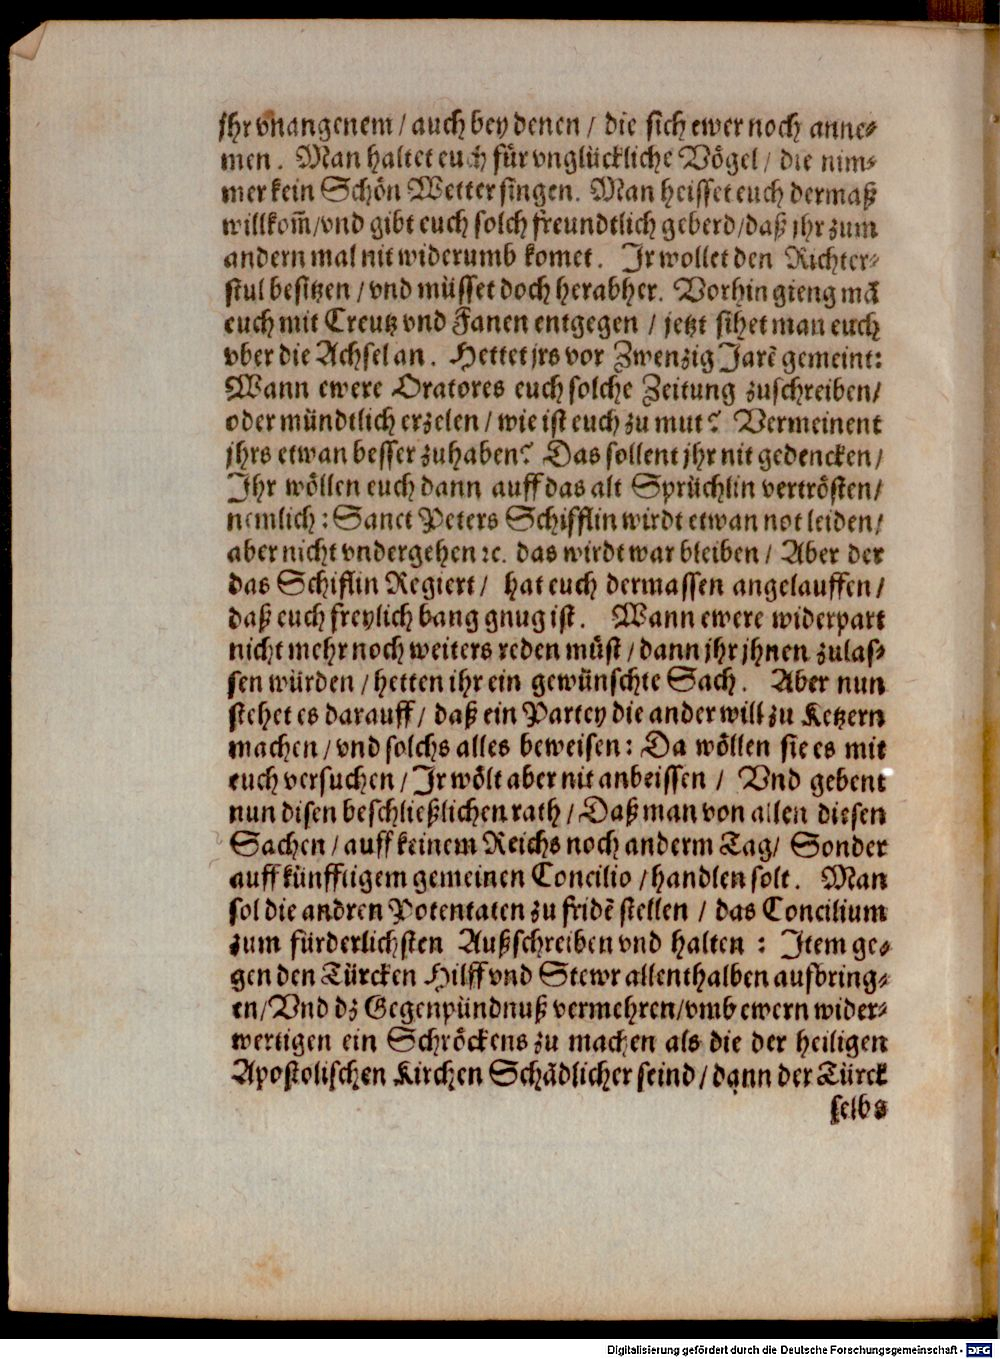 jhr vnangenem / auch bey denen / die sich ewer noch anne-
men . Man haltet euch für vnglückliche Vögel / die nim-
mer kein Schön Wetter singen. Man heisset euch dermaß
willkom̃/vnd gibt euch solch freundtlich geberd/daß jhr zum
andern mal nit widerumb komet . Jr wollet den Richter-
stul besitzen / vnd müsset doch herabher. Vorhin gieng mã
euch mit Creutz vnd Fanen entgegen / jetzt sihet man euch
vber die Achsel an . Hettet jrs vor Zwenzig Jarẽ gemeint:
Wann ewere Oratores euch solche Zeitung zuschreiben/
oder mündtlich erzelen / wie ist euch zu mut? Vermeinent
jhrs etwan besser zuhaben? Das sollent jhr nit gedencken/
Jhr wöllen euch dann auff das alt Sprüchlin vertrösten/
nemlich : Sanct Peters Schifflin wirdt etwan not leiden/
aber nicht vndergehen ꝛc. das wirdt war bleiben / Aber der
das Schiflin Regiert / hat euch dermassen angelauffen /
daß euch freylich bang gnug ist . Wann ewere widerpart
nicht mehr noch weiters reden müst / dann jhr jhnen zulas-
sen würden / hetten ihr ein gewünschte Sach . Aber nun
stehet es darauff / daß ein Partey die ander will zu Ketzern
machen / vnd solchs alles beweisen : Da wöllen sie es mit
euch versuchen / Jr wölt aber nit anbeissen / Vnd gebent
nun disen beschließlichen rath / Daß man von allen diesen
Sachen / auff keinem Reichs noch anderm Tag/ Sonder
auff künfftigem gemeinen Concilio / handlen solt . Man
sol die andren Potentaten zu fridẽ stellen / das Concilium
zum fürderlichsten Außschreiben vnd halten : Jtem ge-
gen den Türcken Hilff vnd Stewr allenthalben aufbring-
en/Vnd dz Gegenpündnuß vermehren/vmb ewern wider-
wertigen ein Schröckens zu machen als die der heiligen
Apostolischen Kirchen Schädlicher seind / dann der Türck
selbs
Digitalisierung gefördert durch die Deutsche Forschungsgemeinschaft - DFG